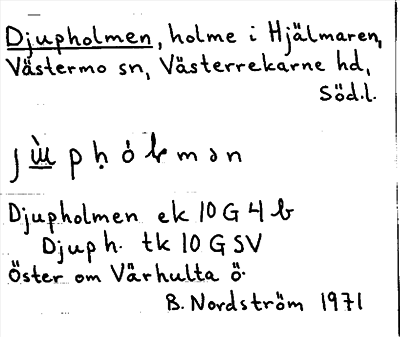 Djupholmen, holme i Hjälmaren,
Västermo sn, Västerrekarne hd,
Söd.l.
Djupholmen ek 10 G 4 b
Djuph. tk 10 G SV
Öster om Värhulta ö.
B. Nordström 1971